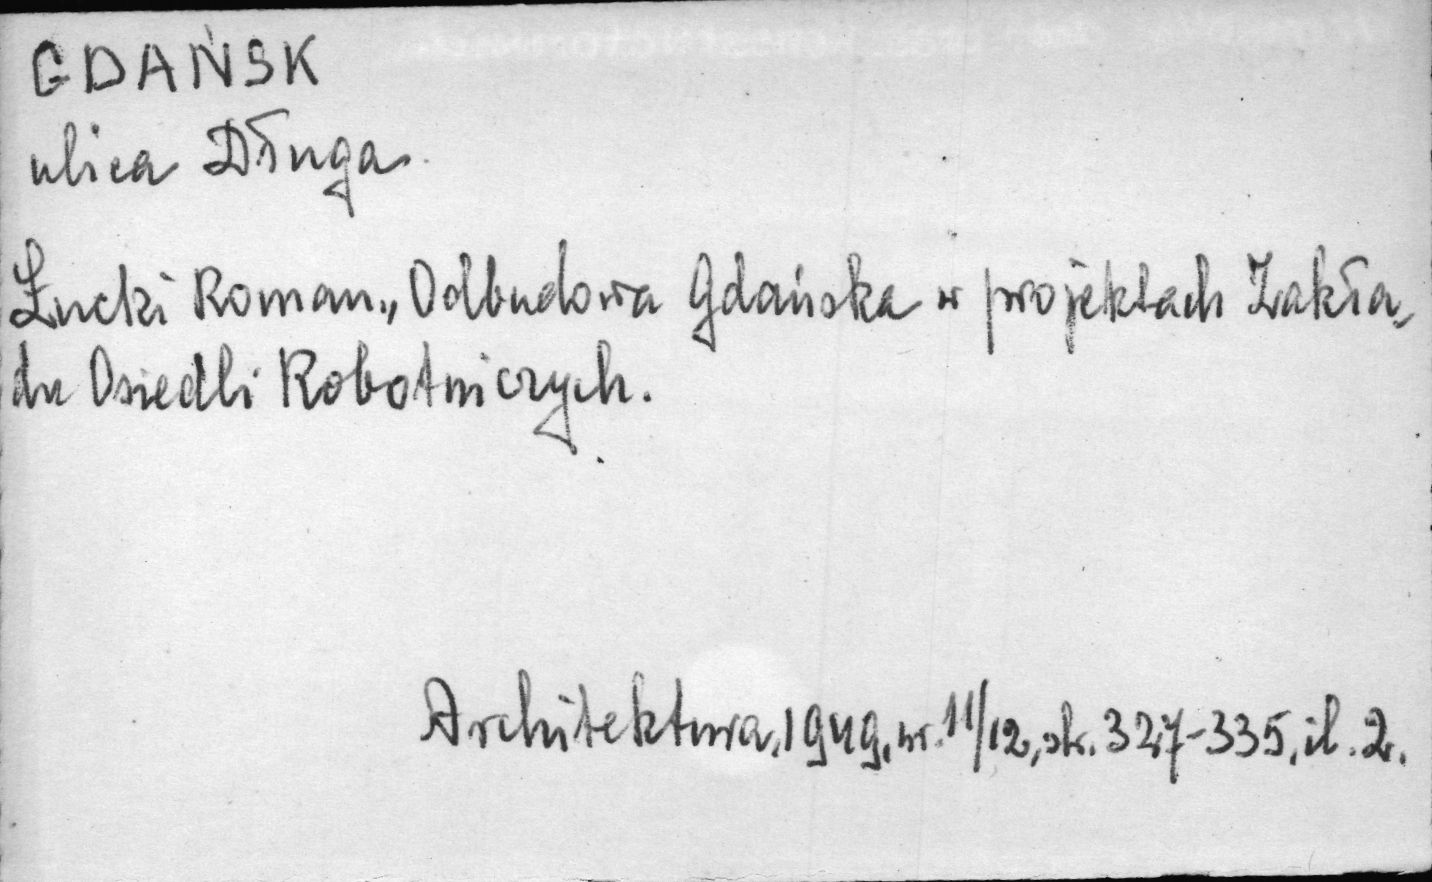 GDAŃSK
ulica Długa.
Łucki Roman., Odbudowa Gdańska w projektach Zakła-
du Osiedli Robotniczych.
Architektura, 1949, nr. 11/12, str. 327-335, il. 2.